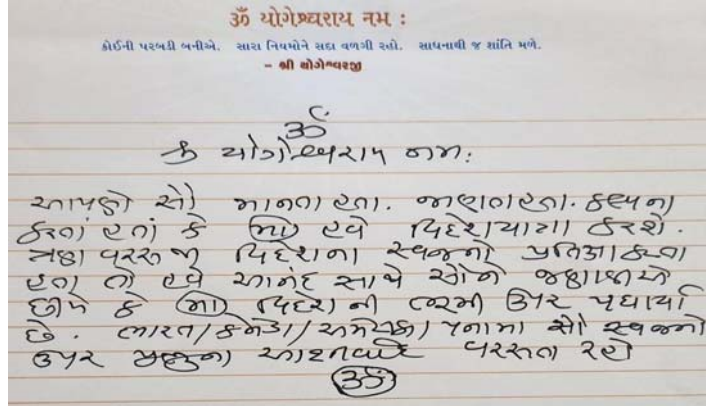 ૐ યોગેશ્વરાય નમ :
કોઈની પરબડી બનીએ. સારા નિયમોને સદા વળગી રહો. સાધનાથી જ શાંતિ મળે.
– શ્રી યોગેશ્વરજી
ૐ
ૐ યોગેશ્વરાય નમઃ
આપણે સૌ માનતા હતા. જાણતા હતા. કલ્પના
કરતાં હતાં કે મા હવે વિદેશયાત્રા કરશે.
વિદેશના સ્વજનો પ્રતિક્ષા કરતા
હતા તો હવે આનંદ સાથે સૌને જણાવીએ
છીએ કે મા વિદેશ ની ભૂમી ઉપર પધાર્યા
છે. ભારત/કેનેડા/અમેરીકા/ સૌ સ્વજનો
ઉપર પ્રભુના આશિર્વાદ વરસતા રહો
ૐ